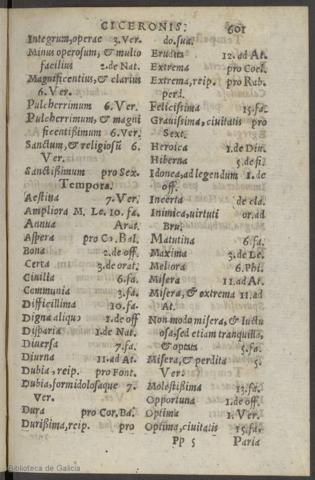 CICERONIS. 601
Integrum, operae 3. Ver.
Minus operosum, & multo
facilius 2. de Nat.
Magnificentius, & clarius
6. Ver.
Pulcherrimum 6. Ver.
Pulcherrimum, & magni
ficentißimum 6. Ver.
Sanctum, & religiosũ 6.
Ver.
Sanctißimum pro Sex.
Tempora.
Aestiua 7. Ver.
Ampliora M. Le. 10. fa.
Annua Arat.
Aspera pro Co. Bal.
Bona 2. de off.
Certa 3. de orat.
Ciuilia 6. fa.
Communia 3. fa.
Difficillima 10. fa.
Digna aliquo 1. de off
Disparia 1. de Nat.
Diuersa 7. fa.
Diurna 11. ad At.
Dubia, reip. pro Font.
Dubia, formidolosaque 7.
Ver.
Dura pro Cor. Ba.
Durißima, reip. pro
do. sua.
Erudita 12. ad At.
Extrema pro Coel.
Extrema, reip. pro Rab.
perd.
Felicißima 15. fa.
Grauissima, ciuitatis pro
Sext.
Heroica 1. de Diu.
Hiberna 5. de fi.
Idonea, ad legendum 1. de
off.
Incerta de cla.
Inimica, uirtuti or. ad
Bru.
Matutina 6. fa.
Maxima 3. de Le.
Meliora 6. Phi.
Misera 11. ad At.
Misera, & extrema 11. ad
At.
Non modo misera, & luctu
osa, sed etiam tranquilla,
& optata 5. fa.
Misera, & perdita 5.
Ver.
Molestißima 13. fa.
Opportuna 1. de off.
Optima 1. Ver.
Optima, ciuitatis 15. fa.
Pp 5 Paria
Biblioteca de Galicia